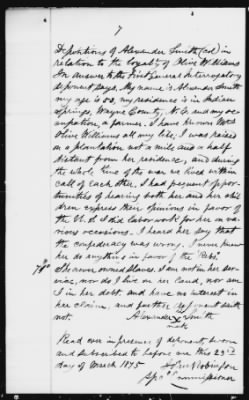 7
Depositions of Alexander Smith (col) in
relation to the loyalty of Olive Williams
In answer to the First General Interrogatory
deponent says, My name is Alexander Smith
my age is 53, my residence is in Indian
Springs, Wayne County, N.C. and my oc-
cupation, a farmer. I have known Mrs
Olive Williams all my life; I was raised
on a plantation not a mile and a half
distant from her residence, and during
the whole time of the war we lived within
call of each other. I had frequent oppor-
tunities of hearing both her and her chil-
dren express their opinions in favor of
the U.S. I did labor work for her on va-
rious occasions. I heard her say that
the confederacy was wrong. I never knew
her do anything in favor of the "Rebs".
She never owned slaves. I am not in her ser-
vice, nor do I live on her land, nor am
I in her debt and have no interest in
her claim, and further deponent saith
not. Alexander X Smith
mark
Read over in presence of deponent, sworn
and subscribed to before me this 23rd
day of March 1875 John Robinson
Spcl Commissioner